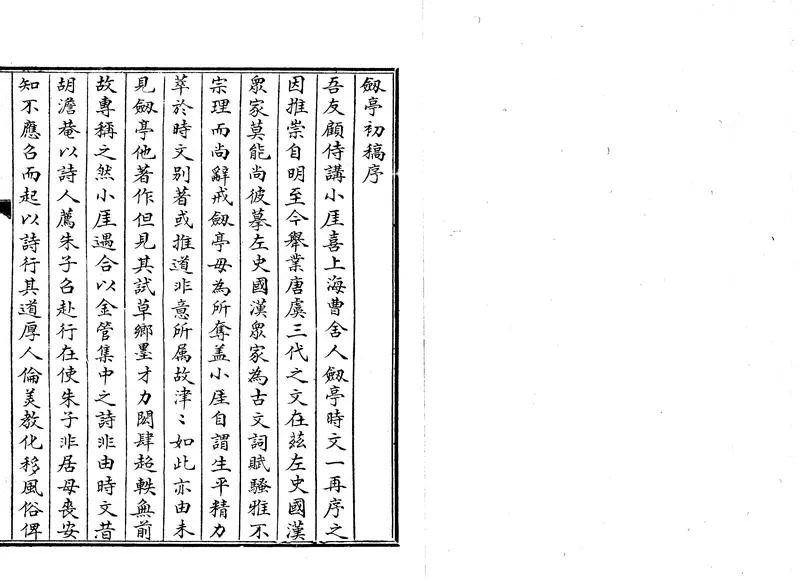 劔亭初稿序
吾友顧侍講小厓喜上海曹舍人劔亭時文一再序之
因推崇自明至今舉業唐虞三代之文在兹左史國漢
眾家莫能尚彼摹左史國漢眾家為古文詞賦騷雅不
宗理而尚辭戒劔亭毋為所奪盖小厓自謂生平精力
萃於時文別著或推道非意所属故津〻如此亦由未
見劔亭他著作但見其試草鄉墨才力閎肆超軼無前
故專稱之然小厓遇合以金管集中之詩非由時文昔
胡澹菴以詩人薦朱子召赴行在使朱子非居母喪安
知不應召而起以詩行其道厚人倫美教化移風俗俾